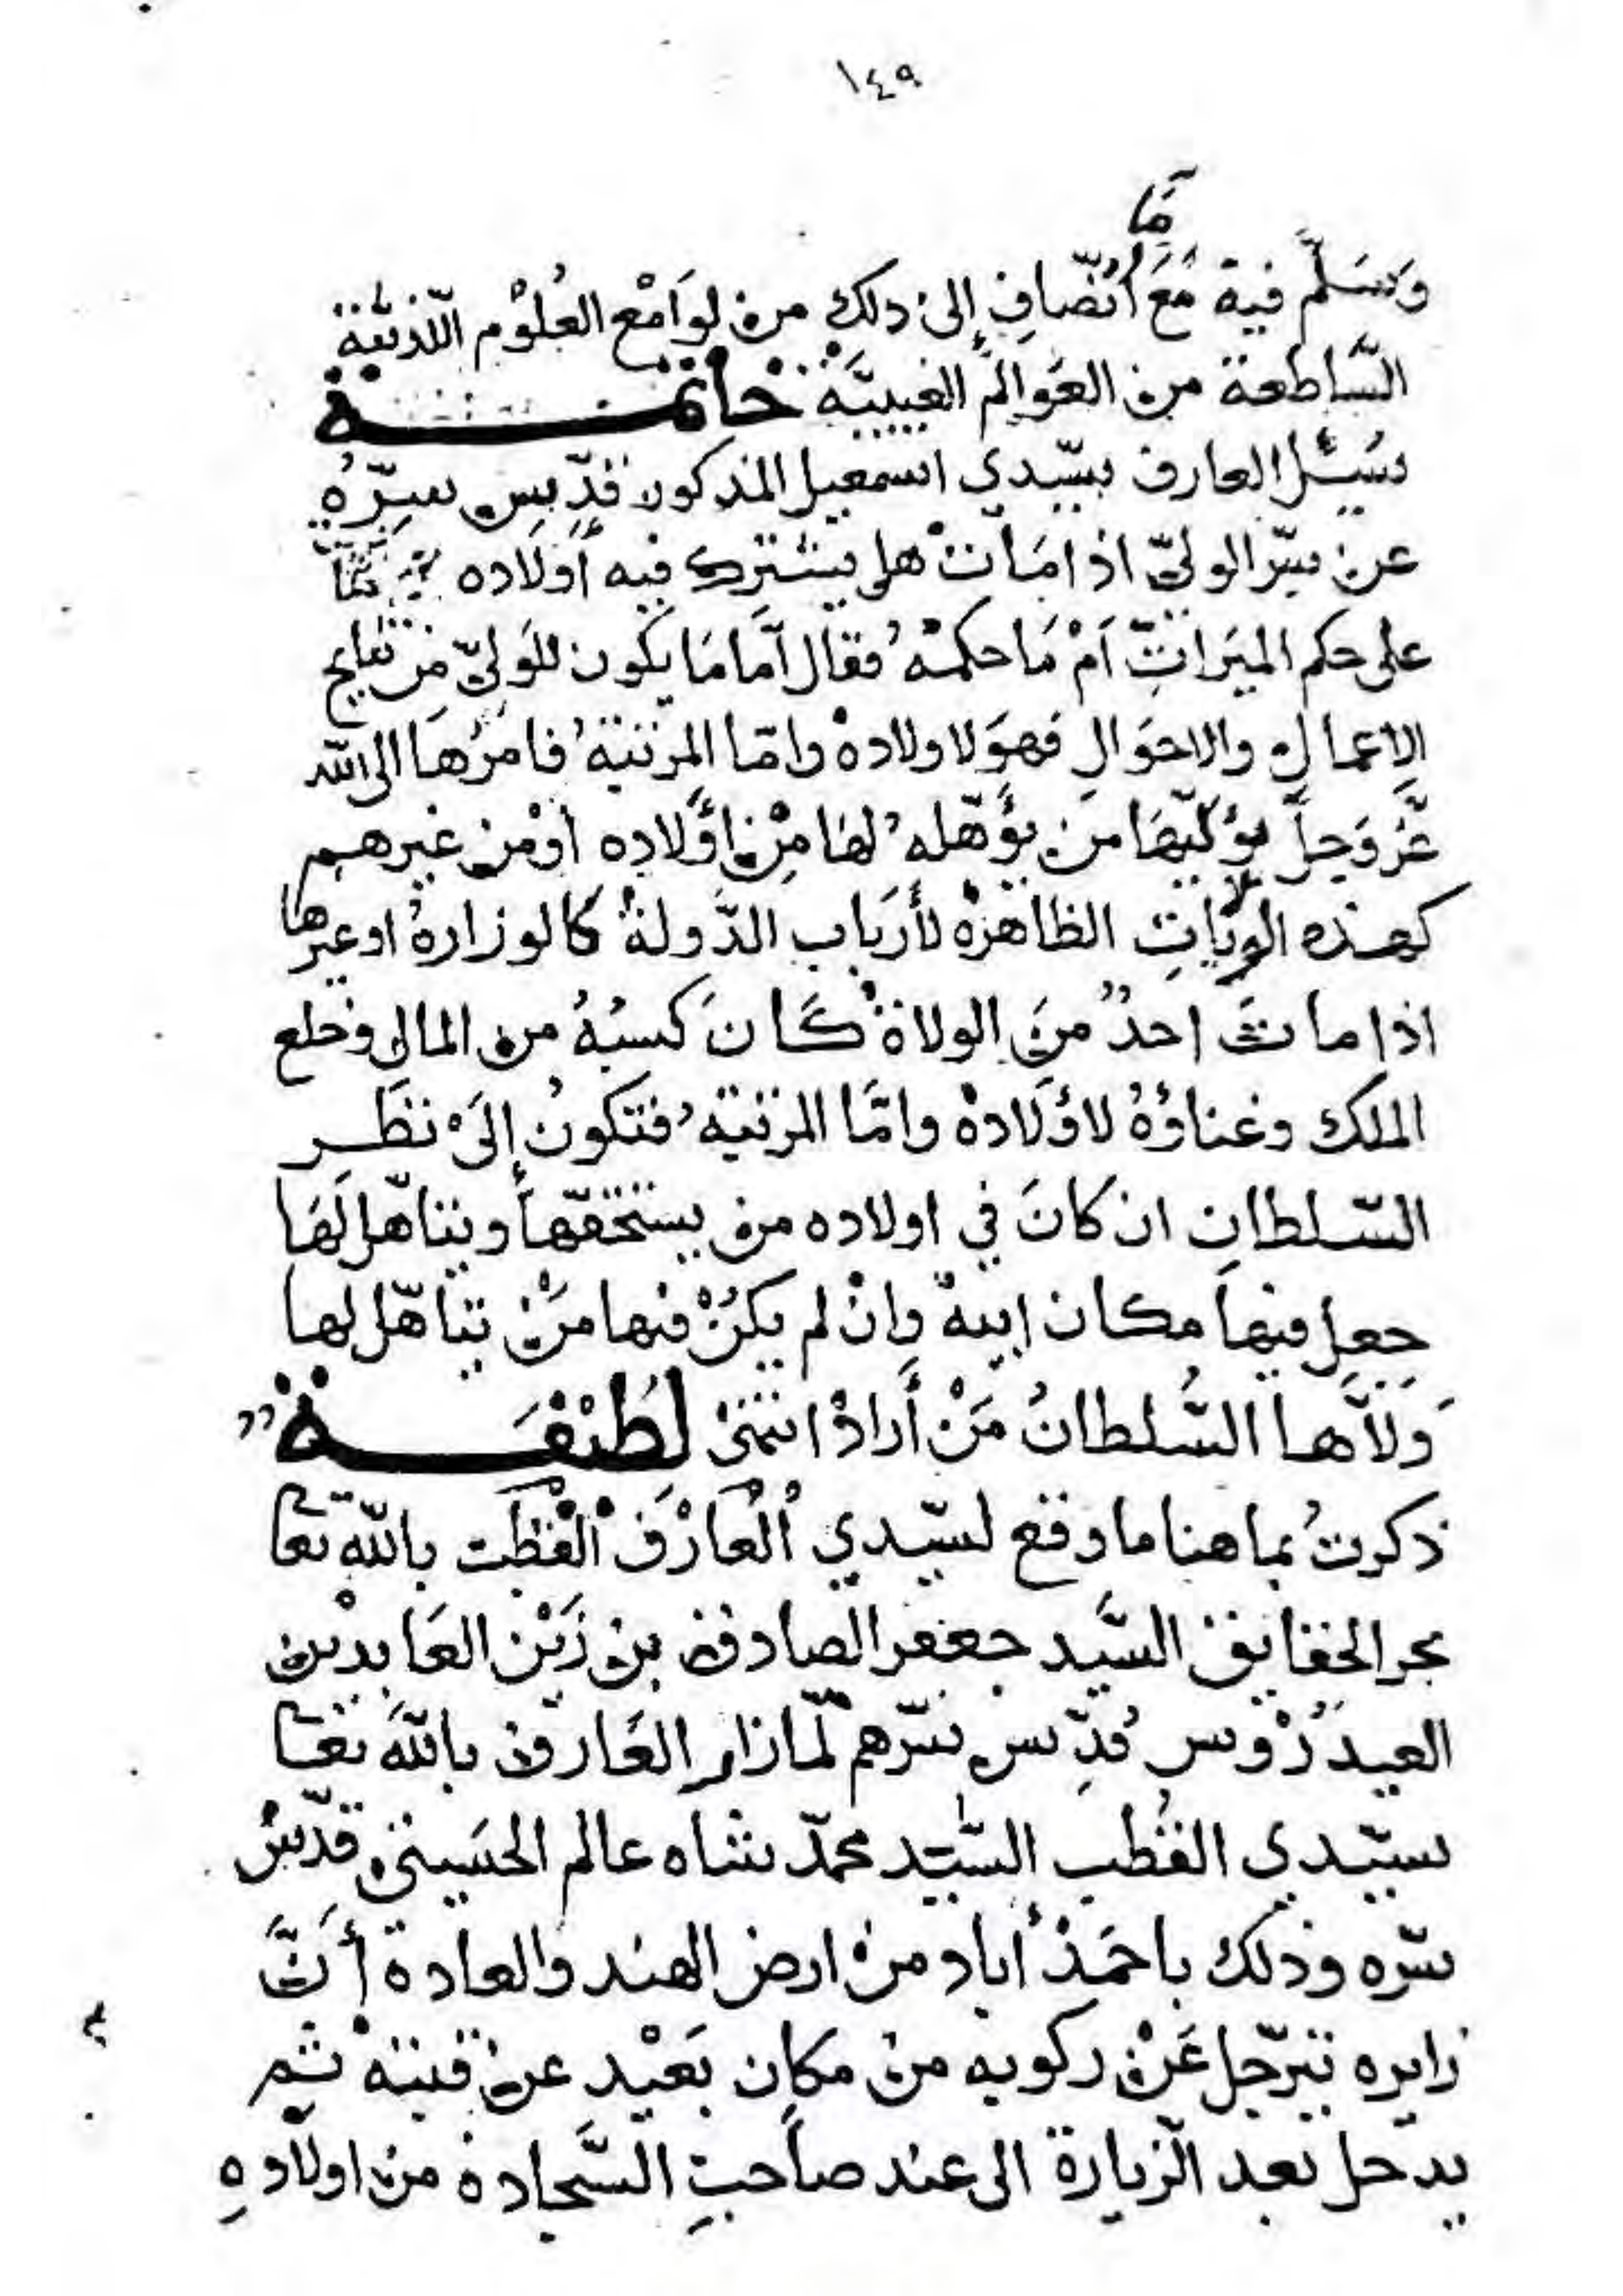 ١٤٩
ما
وَسَلَّم فيه مَعَ انضاف إلى ذلك من لوَامْع العُلوْم اللّدنيّة
السّاطعة من العَوالم الغيبيَّة خاتمة
سُئل العارف سيّدي اسمعيل المذكور قدّس سِرّه
عن سرّ الوليّ اذا مَات هل يشترك فيه أولاده
على حكم الميَراث اَمْ مَا حكمهُ فقال اَمّا مَا يكون للوَليّ مِن نتايج
الاعمال والاحوَالِ فهوَ لاولادهْ وامّا المرتبةُ فامرُهَا الى الله
عَزّ وَجلّ يؤليّهَا من يؤهّلهُ لهَا مِنْ اَوْلاده اَوْ من غيرهم
كهذه الولايَاتِ الظاهرة لأرْبَاب الدَّولة كالوزارة اوغيرها
اذا ماتَ احدٌ منَ الولاة كَانَ كسبُهُ من المال وخلع
الملك وغناؤهُ لاوْلادهْ وامّا المرتبةُ فتكونُ إلىَ نظَر
السّلطانِ ان كانَ في اولاده من يستحقّها ويتأهّل لَهَا
جعل فيهَا مكان ابيهْ وانْ لم يكنْ فيها مَنْ يتأهّل لها
وَلاَّها السُّلطانُ مَنْ أَرادْ انتهىْ لَطيْفَة
ذكرتُ بما هنا ما وقع لسيّدي العَارف القطب بالله تعا
بحر الحقايق السَّيد جعفر الصادق بن زَيْن العَابديْن
العيدَرُوْس قُدّس سرّهم لمّا زار العَارف بالله تعا
سيّدي القُطب السَّيّد محمّد شاه عالم الحسَيني قدّسْ
سرّه وذلك باحمَدْ أباد منْ ارض الهند والعادة أَنَّ
زايره يترّجل عَنْ ركوبه منْ مكان بَعيْد عن قبتهْ ثم
يدخل بعد الزيارة الى عند صاَحبِ السَّجادهْ من اولادهِ